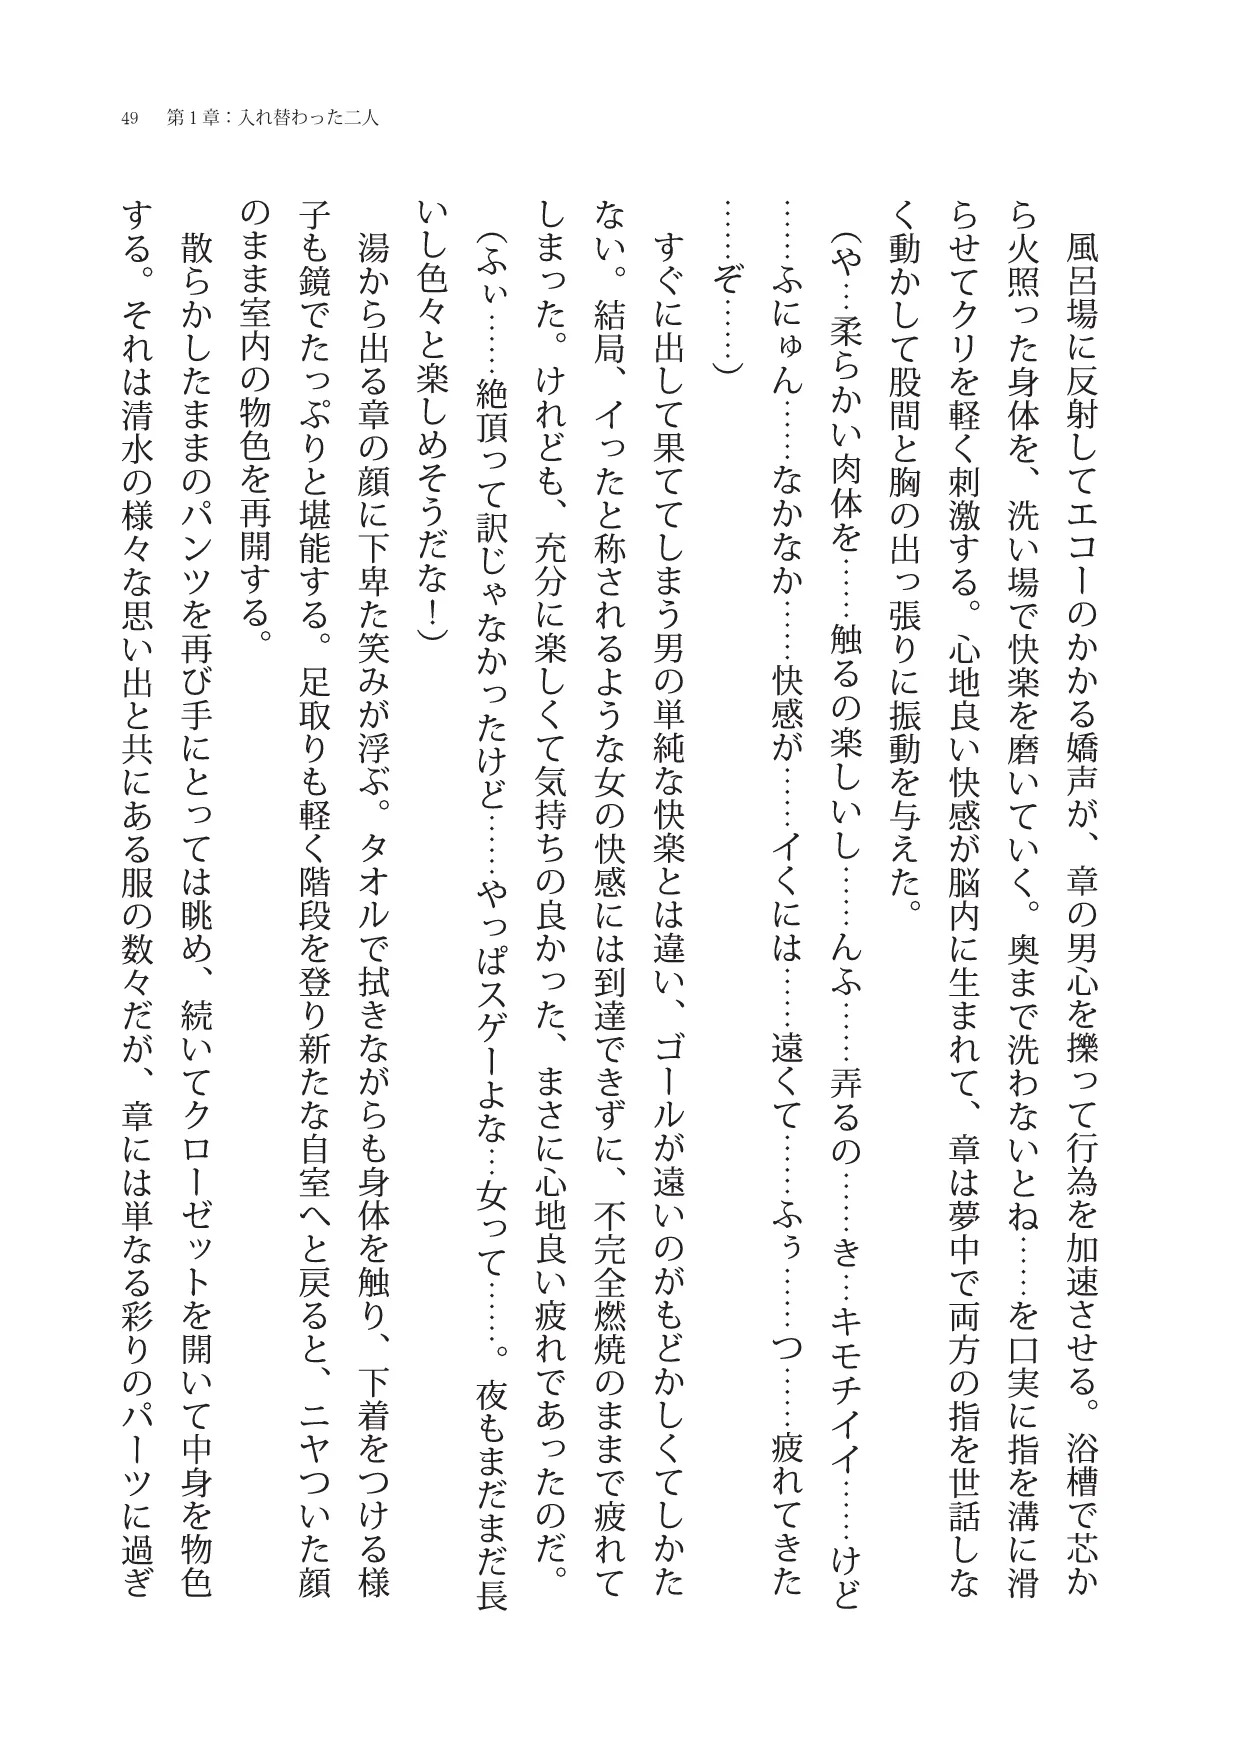 49　第1章：入れ替わった二人
　風呂場に反射してエコーのかかる嬌声が、章の男心を擽って行為を加速させる。浴槽で芯か
ら火照った身体を、洗い場で快楽を磨いていく。奥まで洗わないとね……を口実に指を溝に滑
らせてクリを軽く刺激する。心地良い快感が脳内に生まれて、章は夢中で両方の指を世話しな
く動かして股間と胸の出っ張りに振動を与えた。
（や…柔らかい肉体を……触るの楽しいし……んふ……弄るの……き…キモチイイ……けど
……ふにゅん……なかなか……快感が……イくには……遠くて……ふぅ……つ……疲れてきた
……ぞ……）
　すぐに出して果ててしまう男の単純な快楽とは違い、ゴールが遠いのがもどかしくてしかた
ない。結局、イったと称されるような女の快感には到達できずに、不完全燃焼のままで疲れて
しまった。けれども、充分に楽しくて気持ちの良かった、まさに心地良い疲れであったのだ。
（ふぃ……絶頂って訳じゃなかったけど……やっぱスゲーよな…女って……。夜もまだまだ長
いし色々と楽しめそうだな！）
　湯から出る章の顔に下卑た笑みが浮ぶ。タオルで拭きながらも身体を触り、下着をつける様
子も鏡でたっぷりと堪能する。足取りも軽く階段を登り新たな自室へと戻ると、ニヤついた顔
のまま室内の物色を再開する。
　散らかしたままのパンツを再び手にとっては眺め、続いてクローゼットを開いて中身を物色
する。それは清水の様々な思い出と共にある服の数々だが、章には単なる彩りのパーツに過ぎ